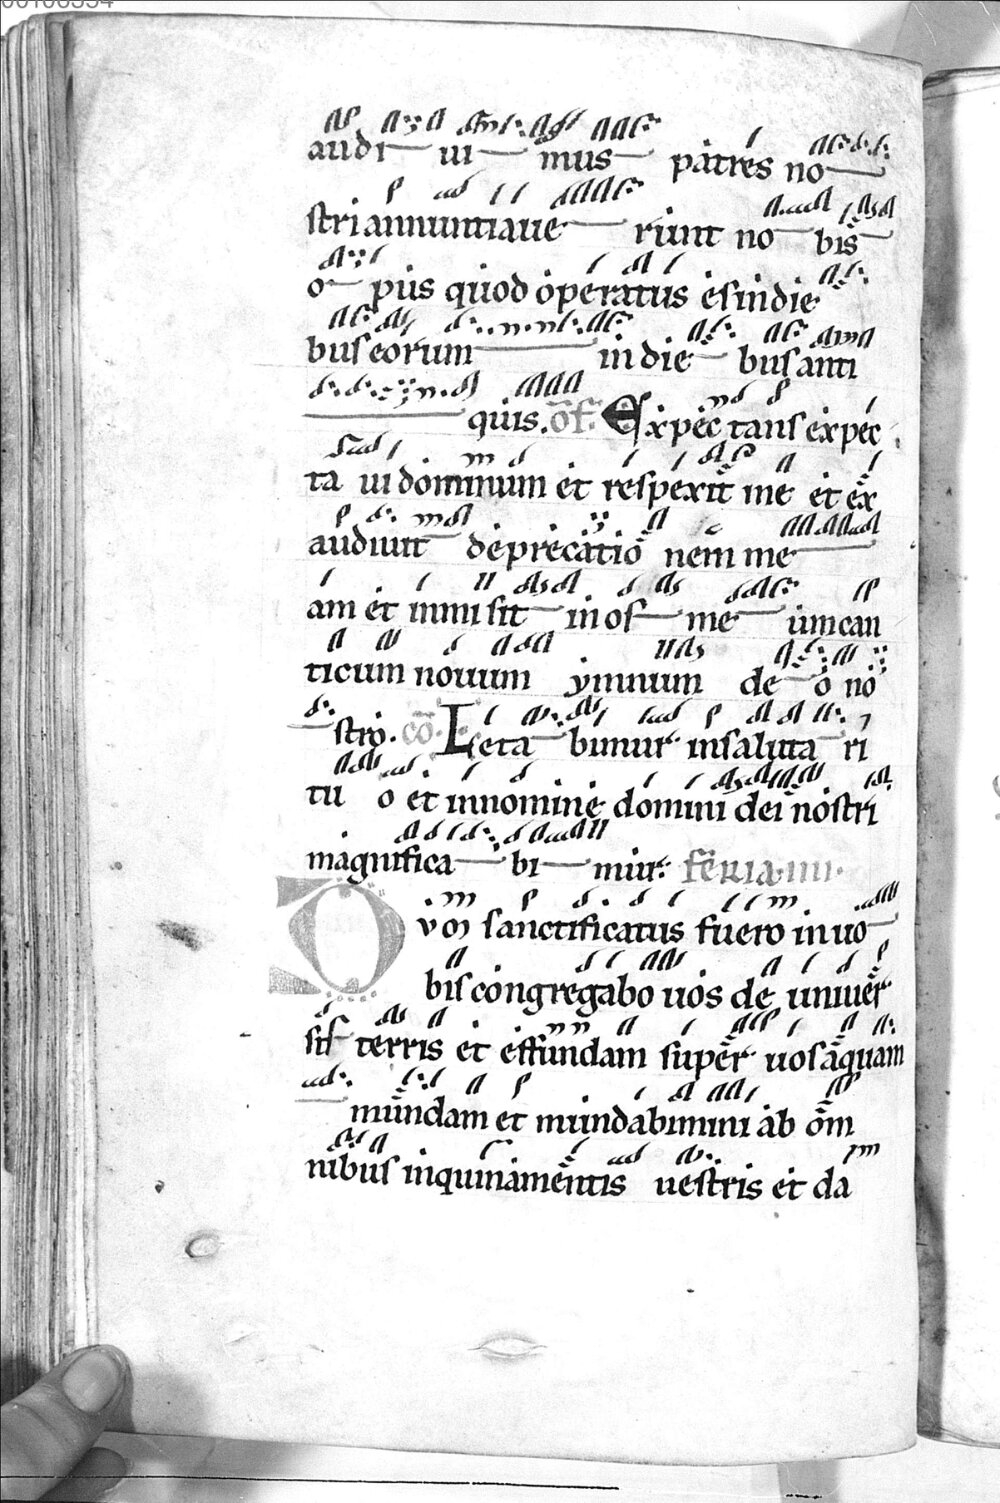 audi ui mus patres no
stri annuntiaue riunt no bis
o pus quod operatus es indie
bus eorum indie bus anti
quis. of Expec tans expec
ta ui dominum et respexit me et ex
audiuit deprecatio nem me
am et inmi sit in os me um can
ticum nouum ymnum de o no
stro. co. Leta bimur insaluta ri
tu o et innomine domini dei nostri
magnifica bi mur. feria iiii.
vm sanctificatus fuero in uo
bis congregabo uos de uniuer
sis terris et effundam super uos aquam
mundam et mundabimini ab om
nibus inquinamentis uestris et da